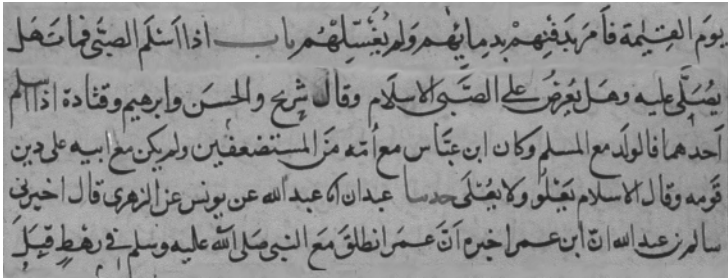 يوم القيمة فأمر بدفنهم بدمائهم ولم يغسلهم باب اذا اسلم الصبى فمات هل
يصلى عليه وهل يعرض على الصبى الاسلام وقال شريح والحسن وابرهيم وقتادة اذا اسلم
احدهما فالولد مع المسلم وكان ابن عباس مع امه من المستضعفين ولم يكن مع ابيه على دين
قومه وقال الاسلام يعلو ولا يعلى حدسا عبدان انا عبد الله عن يونس عن الزهرى قال اخبرنى
سالم بن عبد الله ان ابن عمر اخبره ان عمر انطلق مع النبى صلى الله عليه وسلم فى رهط قبل